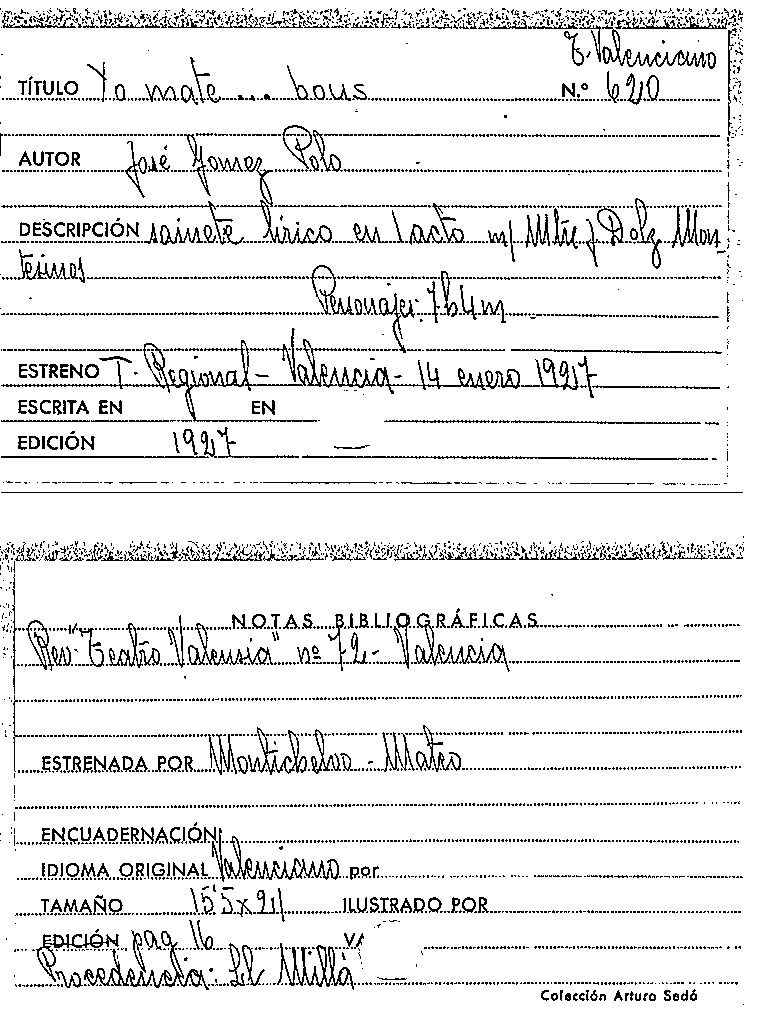 T. Valenciano
TÍTULO Yo mate ... bous N.º 620
AUTOR José Gomez Polo
DESCRIPCIÓN sainete lirico en 1 acto m/ Mtre J Dolz Mon-
tesinos
Personajes: 7h 4m
ESTRENO T. Regional - Valencia - 14 enero 1927
ESCRITA EN EN
EDICIÓN 1927 —
NOTAS BIBLIOGRÁFICAS
Rev. "Teatro Valensia" nº 72 - Valencia
ESTRENADA POR Montichelvo - Mateo
ENCUADERNACIÓN
IDIOMA ORIGINAL Valenciano por
TAMAÑO 15'5 x 21 ILUSTRADO POR
EDICIÓN pag 16
Procedencia: Ll. Millá
Colección Arturo Sedó